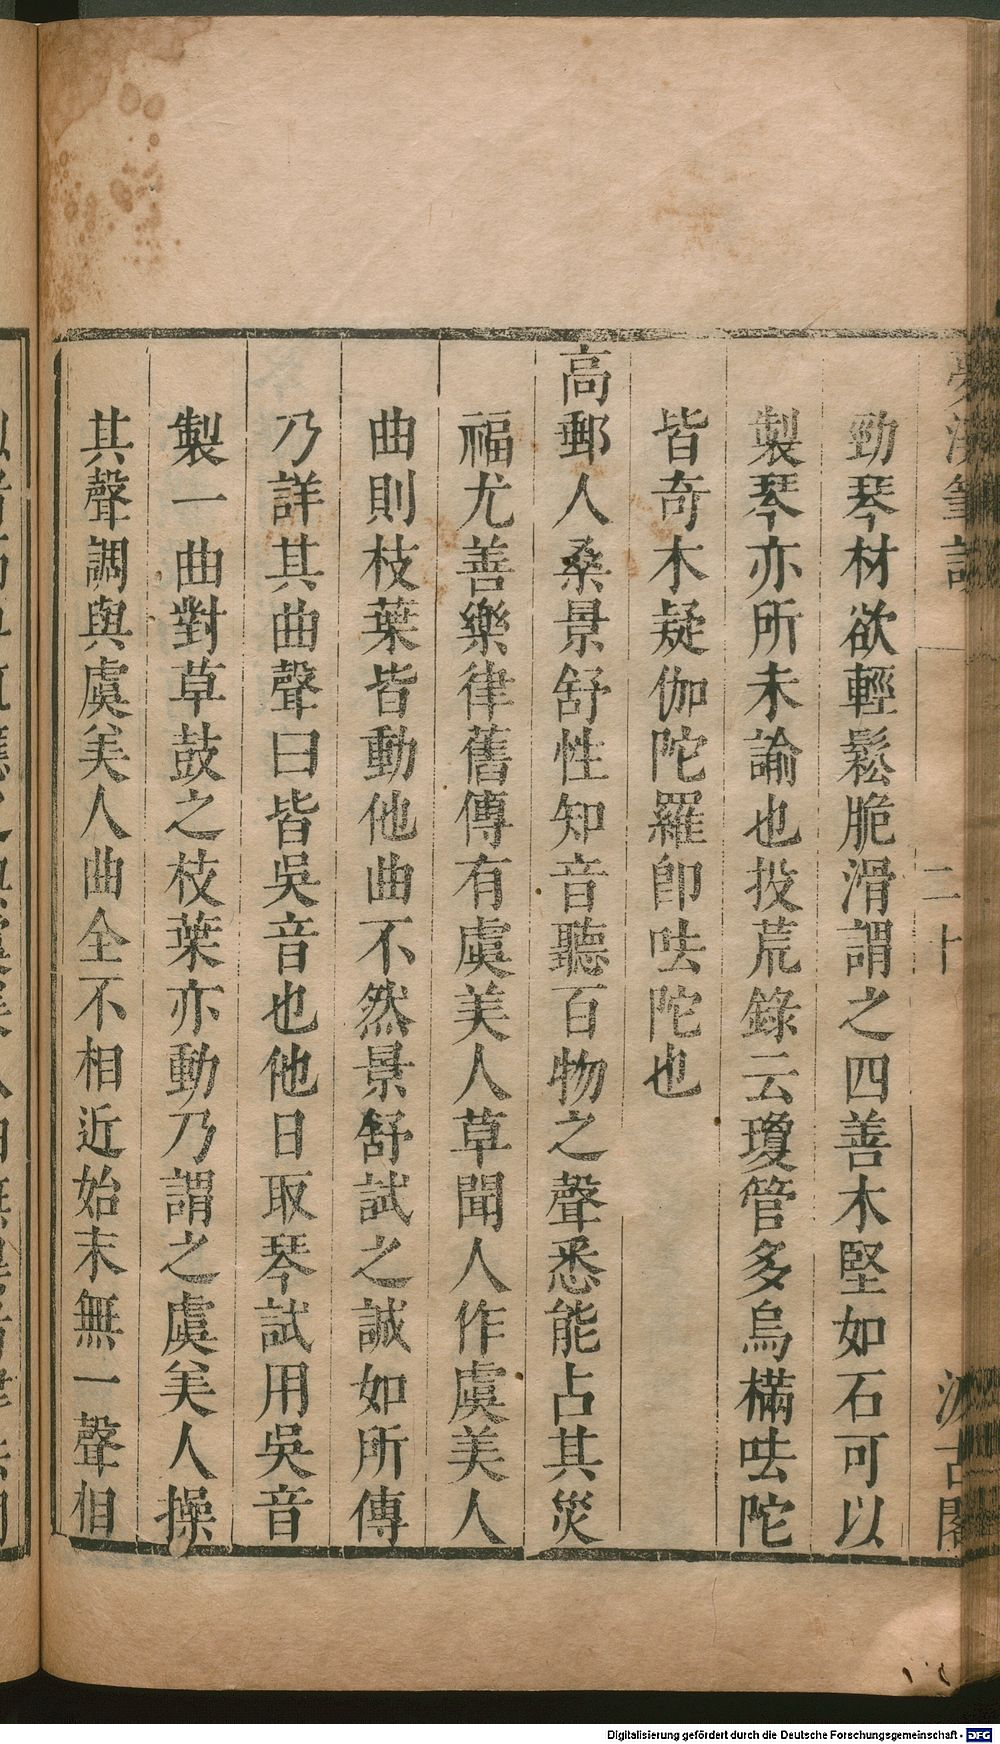 夢溪筆談 二十 汲古閣
勁琴材欲輕鬆脆滑謂之四善木堅如石可以
製琴亦所未諭也投荒錄云瓊管多烏樠呿陀
皆奇木疑伽陀羅卽呿陀也
高郵人桑景舒性知音聽百物之聲悉能占其災
福尤善樂律舊傳有虞美人草聞人作虞美人
曲則枝葉皆動他曲不然景舒試之誠如所傳
乃詳其曲聲曰皆吳音也他日取琴試用吳音
製一曲對草鼓之枝葉亦動乃謂之虞美人操
其聲調與虞美人曲全不相近始末無一聲相
Digitalisierung gefördert durch die Deutsche Forschungsgemeinschaft - DFG